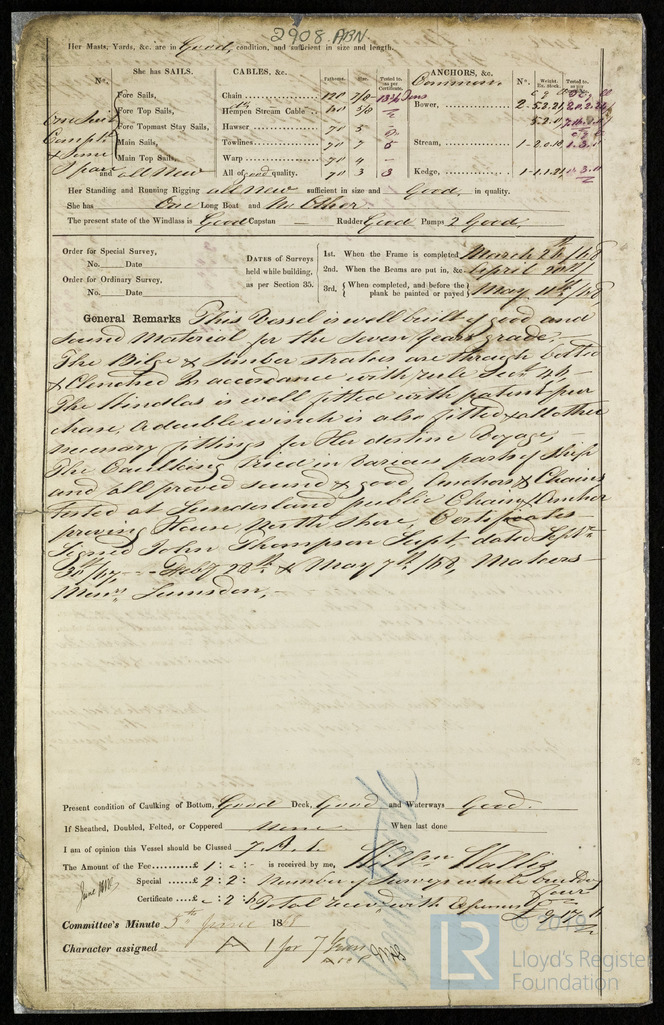 2908 ABN
Her Masts, Yards, &c. are in Good, condition, and sufficient in size and length.
She has SAILS.
CABLES, &c.
ANCHORS, &c.
No.
Fathoms.
Tested to, as per Certificate.
Common
No.
Weight. Ex. Stock.
Tested to as per
Fore Sails,
Chain
120
7/8
Fore Top Sails,
Hempen Stream Cable
Bower,
2
5.2.21
Fore Topmast Stay Sails,
Hawser
70 5
Main Sails,
Towlines
70 7
Stream,
1
Main Top Sails,
Warp
70 4
and all New
All of good quality.
70 3
Kedge,
1
Her Standing and Running Rigging all New sufficient in size and Good, in quality.
She has One Long Boat and No Other
The present state of the Windlass is Good Capstan — Rudder Good Pumps 2 Good,
Order for Special Survey,
No. Date
Order for Ordinary Survey,
No. Date
DATES of Surveys
held while building,
as per Section 35.
1st. When the Frame is completed March 26th /68
2nd. When the Beams are put in, &c. April 20th
3rd. { When completed, and before the plank be painted or payed } May /68
General Remarks This Vessel is well built of good and
sound Material for the Seven Years grade.
The Bilge & Limber strakes are through bolted
& Clenched In accordance with rule Sect 46
The Windlas is well fitted with patent pur
chase, A double winch is also fitted & all other
necessary fittings for Her destine Voyage,
The Caulking tried in various parts of ship
and all proved sound & good Anchors & Chains
tested at Sunderland public Chain & Anchor
proving House, North Shore, Certificates
Signed John Thompson Supt. dated Septr
30th/67 Feby 28th & May 7th /68, Makers
Messrs Lumsden,
Present condition of Caulking of Bottom, Good Deck, Good and Waterways Good.
If Sheathed, Doubled, Felted, or Coppered None When last done
I am of opinion this Vessel should be Classed 7 A. 1.
The Amount of the Fee £ 1 : - : - is received by me,
Special £ 2 : 2 : Number of Surveys while building Four
Certificate £ - : 2 : 6 Total received with Expenses
Committee's Minute 5th June 1868
Character assigned A 1 for 7 Years
© 2019
LR
Lloyd's Register
Foundation